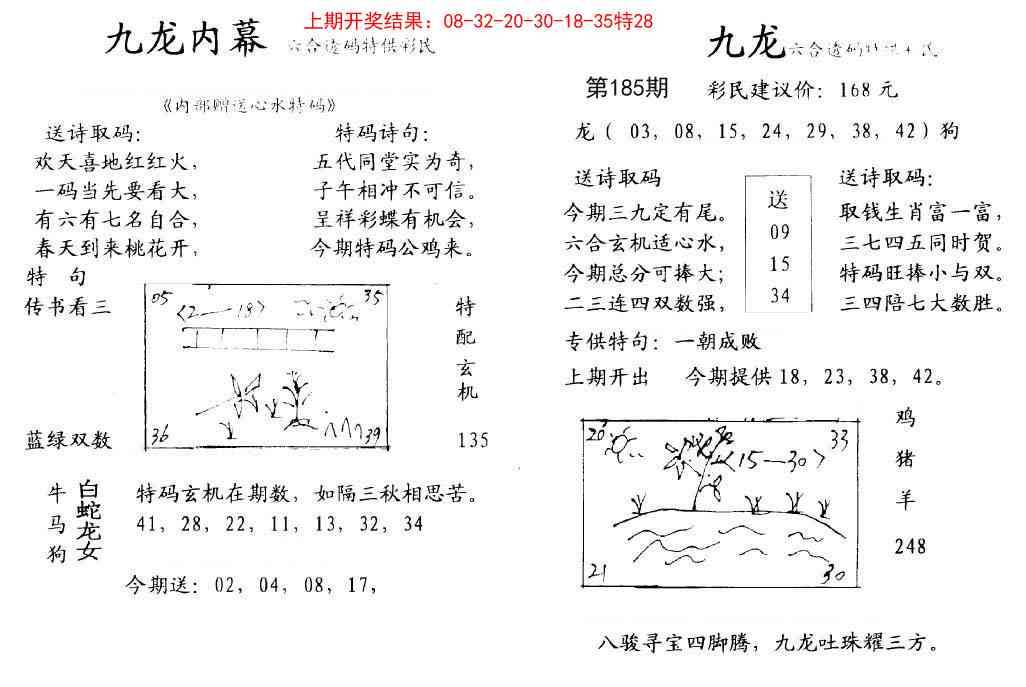 上期开奖结果：08-32-20-30-18-35特28
九龙内幕 六合透码特供彩民
《内部赠送心水特码》
送诗取码：
欢天喜地红红火，
一码当先要看大，
有六有七名自合，
春天到来桃花开，
特码诗句：
五代同堂实为奇，
子午相冲不可信。
呈祥彩蝶有机会，
今期特码公鸡来。
特 句
传书看三
蓝绿双数
05
35
〈2—18〉
36
39
特
配
玄
机
135
牛
马
狗
白蛇龙女
特码玄机在期数，如隔三秋相思苦。
41，28，22，11，13，32，34
今期送：02，04，08，17，
九龙 六合透码特供
第185期 彩民建议价：168 元
龙（ 03，08，15，24，29，38，42）狗
送诗取码
今期三九定有尾。
六合玄机适心水，
今期总分可捧大；
二三连四双数强，
送
09
15
34
送诗取码：
取钱生肖富一富，
三七四五同时贺。
特码旺捧小与双。
三四陪七大数胜。
专供特句：一朝成败
上期开出 今期提供 18，23，38，42。
20
33
〈15—30〉
21
30
鸡
猪
羊
248
八骏寻宝四脚腾，九龙吐珠耀三方。